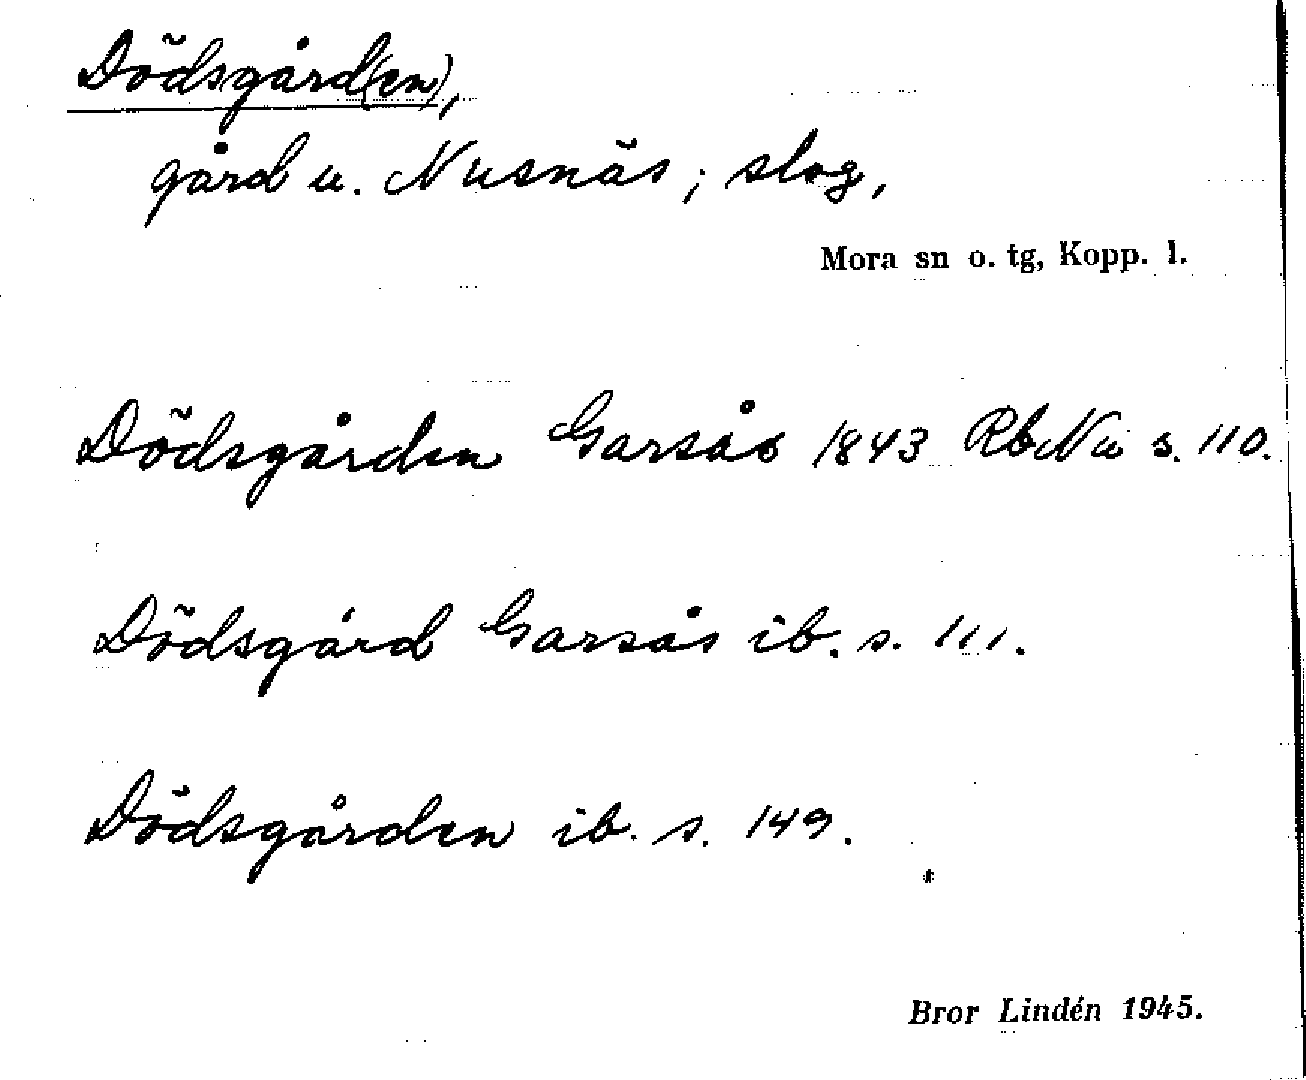 Dödsgård(en),
gård u. Nusnäs; slog,
Mora sn o. tg, Kopp. l.
Dödsgården Garsås 1843 RbNu s. 110.
Dödsgård Garsås ib. s. 111.
Dödsgården ib. s. 149.
Bror Lindén 1945.